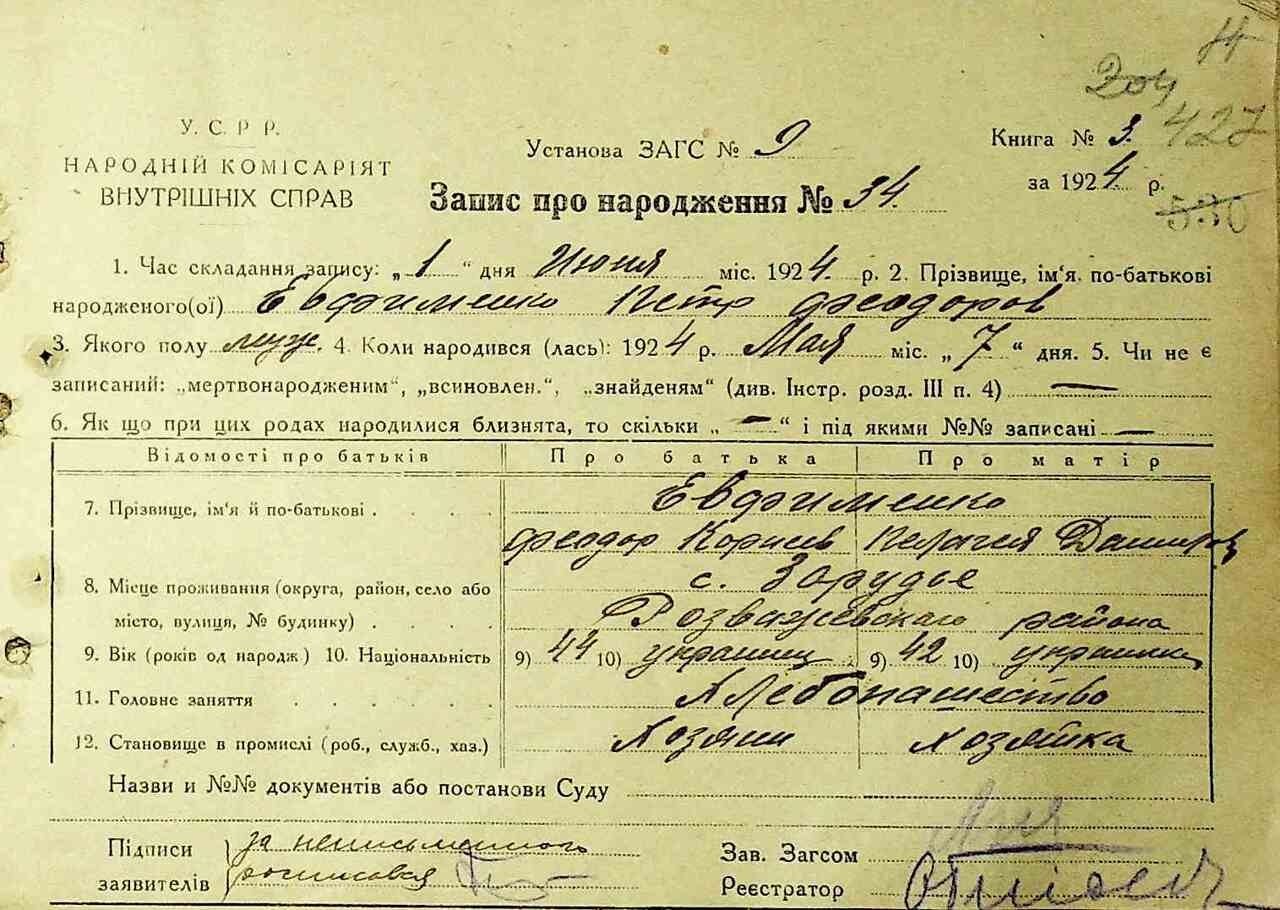 У. С. Р Р.
НАРОДНІЙ КОМІСАРІЯТ
ВНУТРІШНІХ СПРАВ
Установа ЗАГС № 9
Книга № 3.
427
за 1924 р.
530
Запис про народження № 34.
1. Час складання запису: „ 1 “ дня Июня міс. 1924. р. 2. Прізвище, ім'я. по-батькові
народженого(ої) Евфименко Петр Феодоров
3. Якого полу муж. 4. Коли народився (лась): 1924 р. Мая міс. „ 7 “ дня. 5. Чи не є
записаний: „мертвонародженим“, „всиновлен.“, „знайденям“ (див. Інстр. розд. III п. 4) —
6. Як що при цих родах народилися близнята, то скільки „ — “ і під якими №№ записані —
Відомості про батьків Про батька Про матір
7. Прізвище, ім'я й по-батькові . . . . Евфименко
Феодор Корнеев Пелагея Данилов
8. Місце проживання (округа, район, село або с. Зарудье
місто, вулиця, № будинку) . . . . Розважевского района
9. Вік (років од народж) 10. Національність 9) 44 10) украинец 9) 42 10) украинка
11. Головне заняття . . . . . . Хлебопашество
12. Становище в промислі (роб., служб., хаз.) Хозяин Хозяйка
Назви и №№ документів або постанови Суду
Підписи за неписьменного
заявителів росписався
Зав. Загсом
Реєстратор